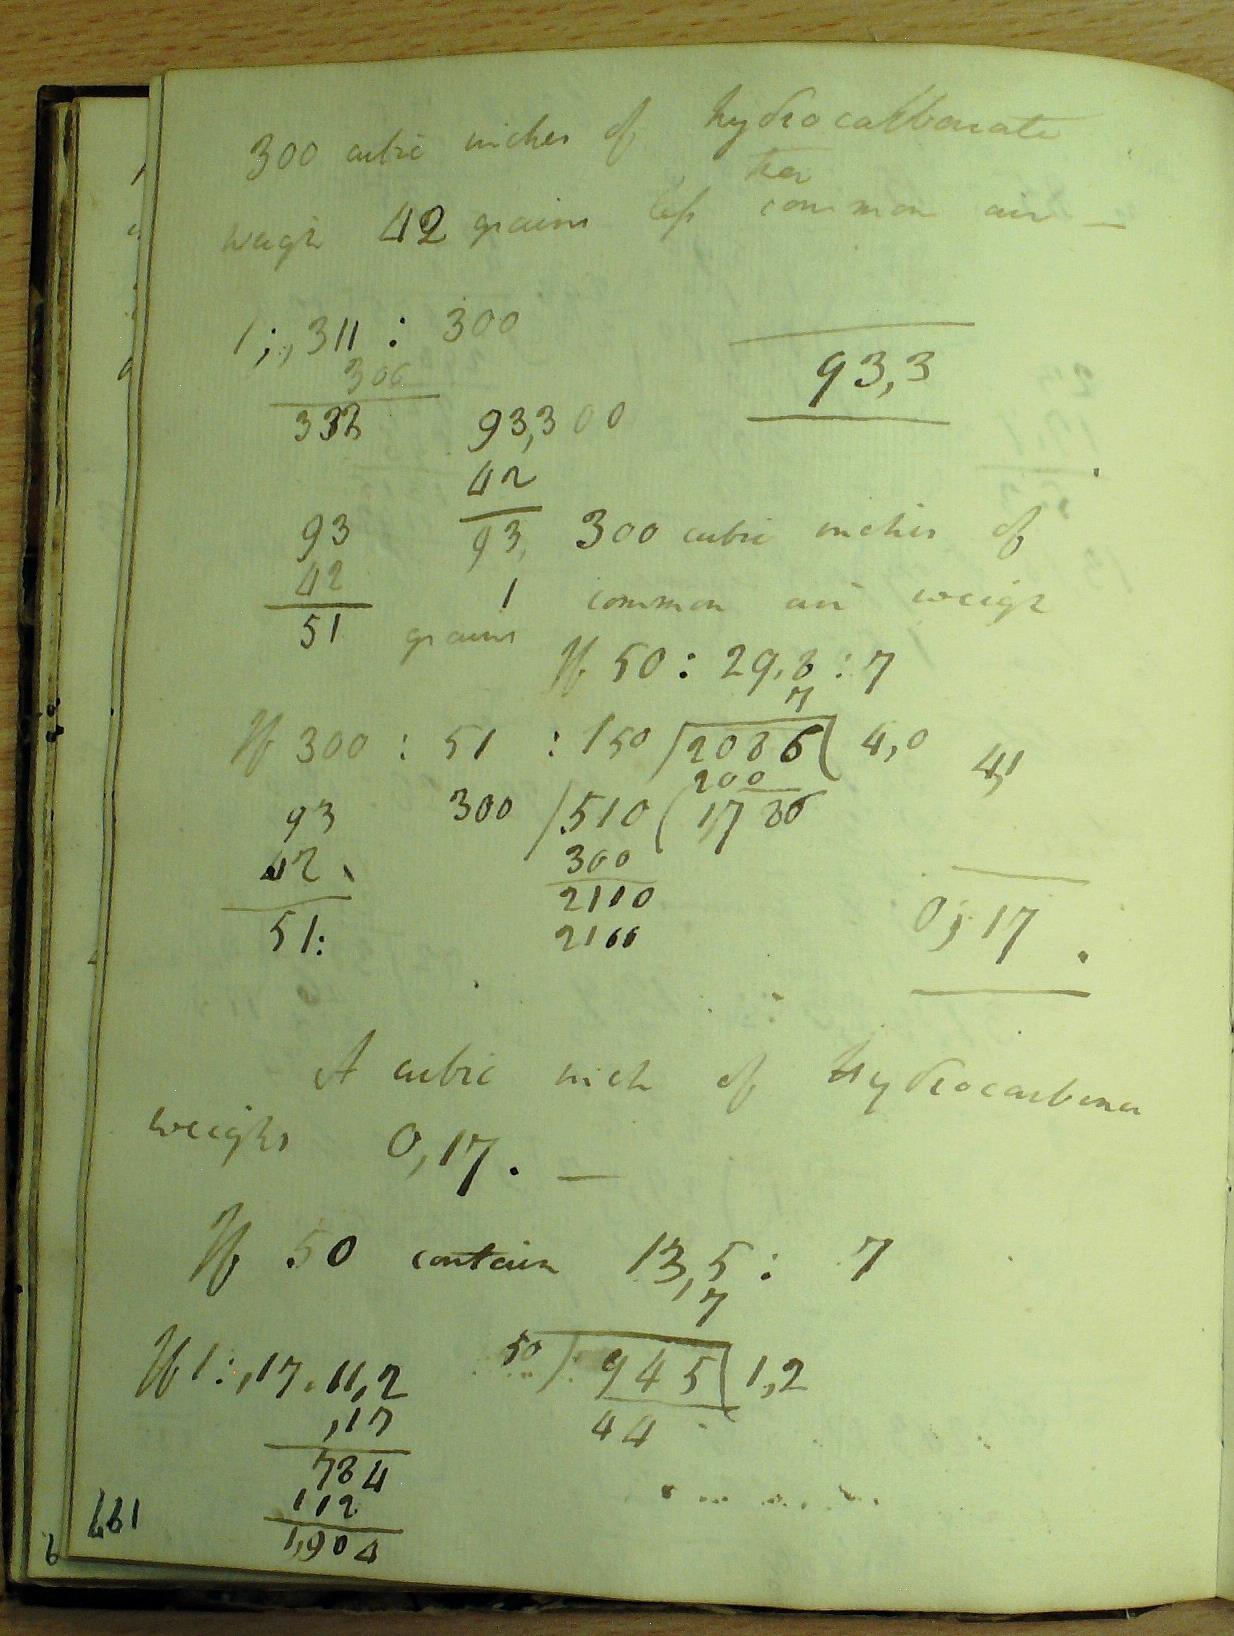 300 cubic inches of hydrocarbonate
than
weigh 42 grains less common air —
1 ; ,311 : 300
300
93,3
332 93,300
42
93 93, 300 cubic inches of
42
1 common air weigh
51 grains
If 50 : 29,8 : 7
7
If 300 : 51 : 150 2086 ( 4,0 4,1
200
93 300 / 510 ( 1,7 86
42
300
2110
51: 2100
0,17 .
A cubic inch of hydrocarbonate
weighs 0,17. —
If 50 contain 13,5 : 7
7
If 1 : ,17 . 11,2 50 ) 945 1,2
,17 44
784
112
1,904
161
6